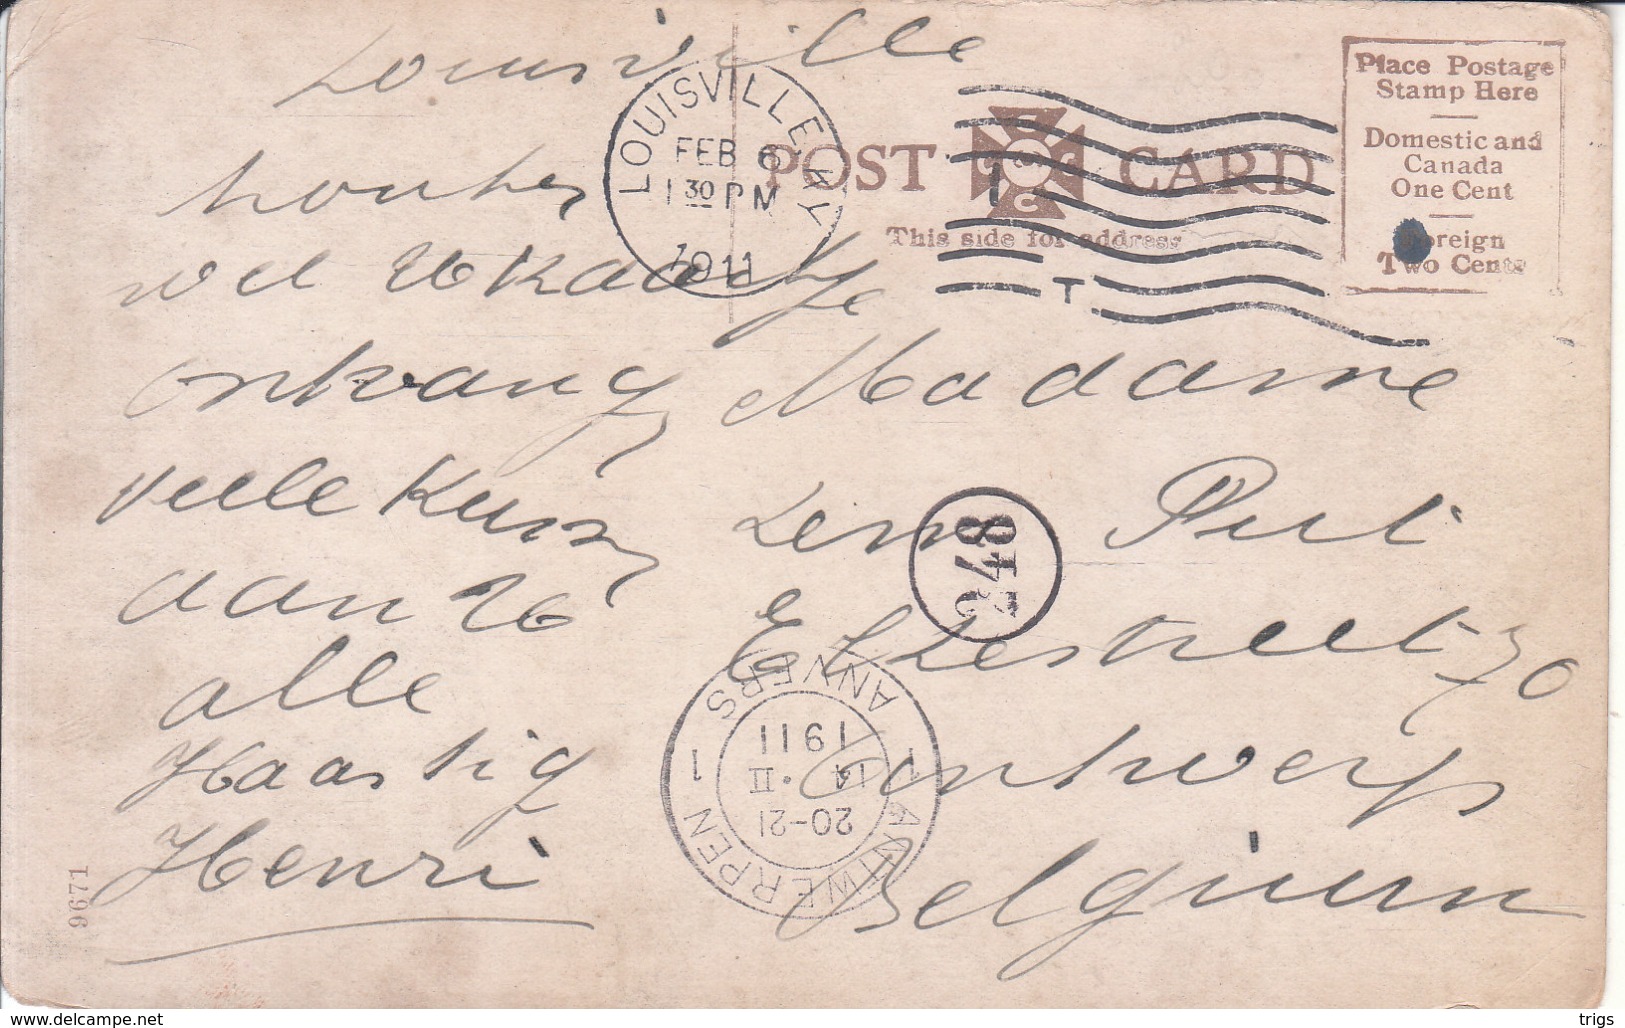 Louisville
wel U Kaartje
ontvang
veele Kussen
aan U
alle
Haastig
Henri
9671
LOUISVILLE, KY
FEB 6
1 30 PM
1911
POST CARD
This side for address
T
Place Postage
Stamp Here
Domestic and
Canada
One Cent
Foreign
Two Cents
Madame
Put
70
Antwerp
Belgium
ANTWERPEN 1
1 ANVERS
20-21
14 • II
1911
www.delcampe.net
trigs